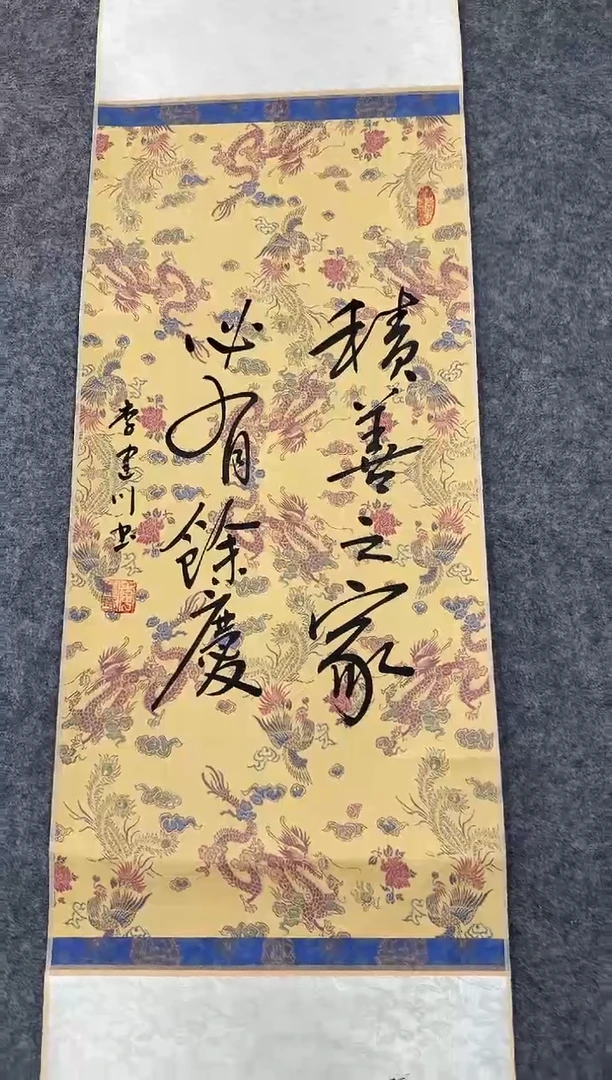 積善之家
必有餘慶
李建川书